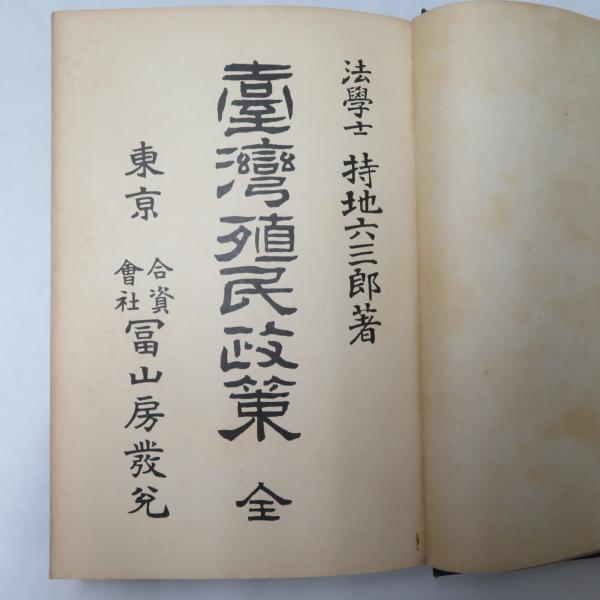 法學士 持地六三郎著
臺灣殖民政策 全
東亰 合資會社 冨山房發兌